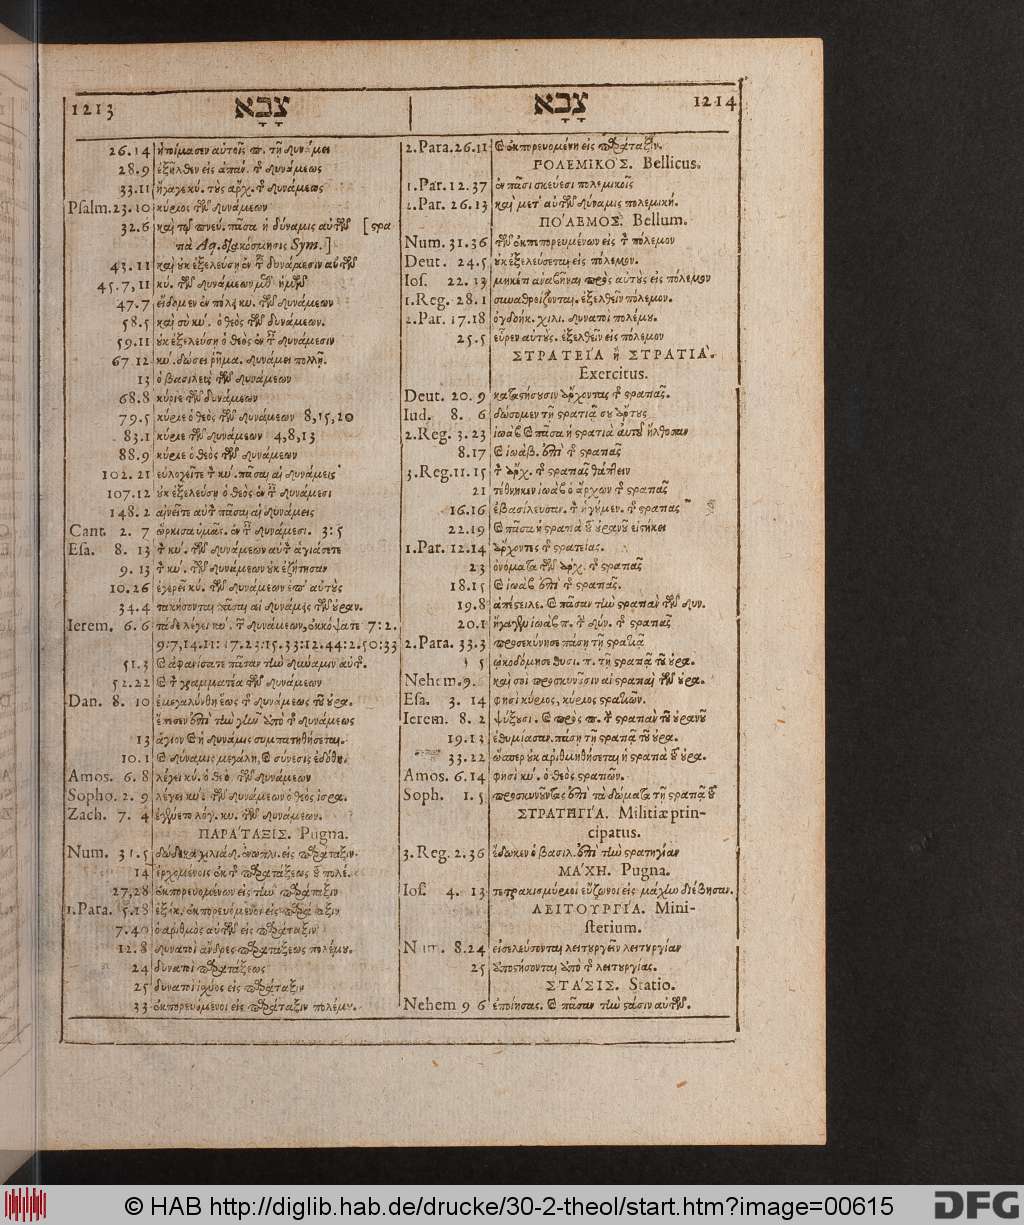 1213 צָבָא
26.14 ἡτοίμασεν αὐτοῖς π. τῇ δυνάμει
28.9 ἐξῆλθεν εἰς ἀπάν. τ δυνάμεως
33.11 ἤγαγε κύ. τοὺς ἄρχ. τ δυνάμεως
Psalm.23.10 κύριος τῶν δυνάμεων
32.6 καὶ τῷ πνεύ. πᾶσα ἡ δύναμις αὐτῶν [στρα
τιὰ Aq. διακόσμησις Sym.]
43.11 καὶ οὐκ ἐξελεύσῃ ἐν τ δυνάμεσιν αὐτῶν
45.7,11 κύ. τῶν δυνάμεων μεθ' ἡμῶν
47.7 εἴδομεν ἐν πόλει κυ. τῶν δυνάμεων
58.5 καὶ σὺ κυ'. ὁ θεὸς τῶν δυνάμεων.
59.11 οὐκ ἐξελεύσῃ ὁ θεὸς ἐν τ δυνάμεσιν
67.12 κύ. δώσει ῥῆμα. δυνάμει πολλῇ.
13 ὁ βασιλεὺς τῶν δυνάμεων
68.8 κύριε τῶν δυνάμεων
79.5 κύριε ὁ θεὸς τῶν δυνάμεων 8,15,20
83.1 κύριε τῶν δυνάμεων 4,8,13
88.9 κύριε ὁ θεὸς τῶν δυνάμεων
102.21 εὐλογεῖτε τ κύ'. πᾶσαι αἱ δυνάμεις
107.12 οὐκ ἐξελεύσῃ ὁ θεὸς ἐν τ δυνάμεσι
148.2 αἰνεῖτε αὐτ πᾶσαι αἱ δυνάμεις
Cant. 2. 7 ὥρκισα ὑμᾶς. ἐν τ δυνάμεσι. 3:5
Esa. 8. 13 τ κυ'. τῶν δυνάμεων αὐτ ἁγιάσετε
9. 13 τ κυ'. τῶν δυνάμεων οὐκ ἐζήτησαν
10.26 ἐγερεῖ κύ. τῶν δυνάμεων ἐπ' αὐτοὺς
34.4 τακήσονται πᾶσαι αἱ δυνάμεις τῶν οὐραν.
Ierem. 6.6 τάδε λέγει κυ'. τ δυνάμεων, ἐκκόψατε 7:2.
9:7,14.11:17.23:15.33:12.44:2.50:33
51.3 καὶ ἀφανίσατε πᾶσαν τὴν δύναμιν αὐτ.
52.22 καὶ τ γραμματέα τῶν δυνάμεων
Dan. 8. 10 ἐμεγαλύνθη ἕως τ δυνάμεως τοῦ οὐρα.
ἔπεσεν ἐπὶ τὴν γῆν ἀπὸ τ δυνάμεως
13 ἅγιον καὶ ἡ δύναμις συμπατηθήσεται.
10.1 καὶ δύναμις μεγάλη, καὶ σύνεσις ἐδόθη.
Amos. 6. 8 λέγει κύ. ὁ θεὸ. τῶν δυνάμεων
Sopho. 2. 9 λέγει κύ'. τῶν δυνάμεων ὁ θεὸς ἰσρα.
Zach. 7. 4 ἐγένετο λόγ. κυ. τῶν δυνάμεων.
ΠΑΡΑ'ΤΑΞΙΣ. Pugna.
Num. 31.5 δώδεκα χιλιάδ. ἐνωπλι. εἰς παράταξιν.
14 ἐρχομένοις ἐκ τ παρατάξεως τοῦ πολέ.
27,28 ἐκπορευομένων εἰς τὴν παράταξιν
1.Para. 5.18 ἑξάκ. ἐκπορευόμενοι εἰς παράταξιν
7.40 ὁ ἀριθμὸς αὐτῶν εἰς παράταξιν
12.8 δυνατοὶ ἄνδρες παρατάξεως πολέμου.
24 δυνατοὶ παρατάξεως
25 δυνατοὶ ἰσχύος εἰς παράταξιν
33 ἐκπορευόμενοι εἰς παράταξιν πολέμου.
צָבָא 1214
2.Para.26.11 καὶ ἐκπορευομένη εἰς παράταξιν.
ΠΟΛΕΜΙΚΟ'Σ. Bellicus.
1.Par. 12.37 ἐν πᾶσι σκεύεσι πολεμικοῖς
2.Par. 26.13 καὶ μετ' αὐτῶν δύναμις πολεμική.
ΠΟ'ΛΕΜΟΣ. Bellum.
Num. 31.36 τῶν ἐκπεπορευμένων εἰς τ πόλεμον
Deut. 24.5 οὐκ ἐξελεύσεται εἰς πόλεμον.
Ios. 22. 13 μηκέτι ἀναβῆναι πρὸς αὐτοὺς εἰς πόλεμον
1.Reg. 28.1 συναθροίζονται. ἐξελθεῖν πόλεμον.
2.Par. 17.18 ὀγδοήκ. χιλι. δυνατοὶ πολέμου.
25.5 εὗρεν αὐτοὺς. ἐξελθεῖν εἰς πόλεμον
ΣΤΡΑΤΕΙ'Α ἢ ΣΤΡΑΤΙΑ'.
Exercitus.
Deut. 20. 9 καταστήσουσιν ἄρχοντας τ στρατιᾶς.
Iud. 8. 6 δώσομεν τῇ στρατιᾷ σου ἄρτους
2.Reg. 3.23 ἰωὰβ καὶ πᾶσα ἡ στρατιὰ αὐτοῦ ἤλθοσαν
8.17 καὶ ἰωὰβ. ἐπὶ τ στρατιᾶς
3.Reg.11.15 τ ἄρχ. τ στρατιᾶς θάπτειν
21 τέθνηκεν ἰωὰβ ὁ ἄρχων τ στρατιᾶς
16.16 ἐβασίλευσαν. τ ἡγούμεν. τ στρατιᾶς
22.19 καὶ πᾶσα ἡ στρατιὰ τοῦ οὐρανοῦ εἱστήκει
1.Par. 12.14 ἄρχοντες τ στρατείας.
23 ὀνόματα τῶν ἀρχ. τ στρατιᾶς
18.15 καὶ ἰωὰβ ἐπὶ τ στρατιᾶς.
19.8 ἀπέστειλε. καὶ πᾶσαν τὴν στρατιὰν τῶν δυν.
20.1 ἤγαγεν ἰωὰβ π. τ δύν. τ στρατιᾶς
2.Para. 33.3 προσεκύνησε πάσῃ τῇ στρατιᾷ
5 ᾠκοδόμησε θυσι. π. τῇ στρατιᾷ τοῦ οὐρα.
Nehem.9. καὶ σοὶ προσκυνοῦσιν αἱ στρατιαὶ τῶν οὐρα.
Esa. 3. 14 φησὶ κύριος, κύριος στρατιῶν.
Ierem. 8. 2 ψύξουσι. καὶ πρὸς π. τ στρατιὰν τοῦ οὐρανοῦ
19.13 ἐθυμίασαν. πάσῃ τῇ στρατιᾷ τοῦ οὐρα.
33.22 ὥσπερ οὐκ ἀριθμηθήσεται ἡ στρατιὰ τοῦ οὐρα.
Amos. 6.14 φησὶ κυ'. ὁ θεὸς στρατιῶν.
Soph. 1. 5 προσκυνοῦντας ἐπὶ τὰ δώματα τῇ στρατιᾷ τοῦ
ΣΤΡΑΤΗΓΙ'Α. Militiæ prin-
cipatus.
3.Reg. 2.36 ἔδωκεν ὁ βασιλ. ἐπὶ τὴν στρατηγίαν
ΜΑ'ΧΗ. Pugna.
Ios. 4. 13 τετρακισμύριοι εὔζωνοι εἰς μάχην διέβησαν.
ΛΕΙΤΟΥΡΓΙ'Α. Mini-
sterium.
Num. 8.24 εἰσελεύσονται λειτουργεῖν λειτουργίαν
25 ἀποστήσονται ἀπὸ τ λειτουργίας.
ΣΤΑ'ΣΙΣ. Statio.
Nehem 9 6 ἐποίησας. καὶ πᾶσαν τὴν στάσιν αὐτῶν.
© HAB http://diglib.hab.de/drucke/30-2-theol/start.htm?image=00615
DFG